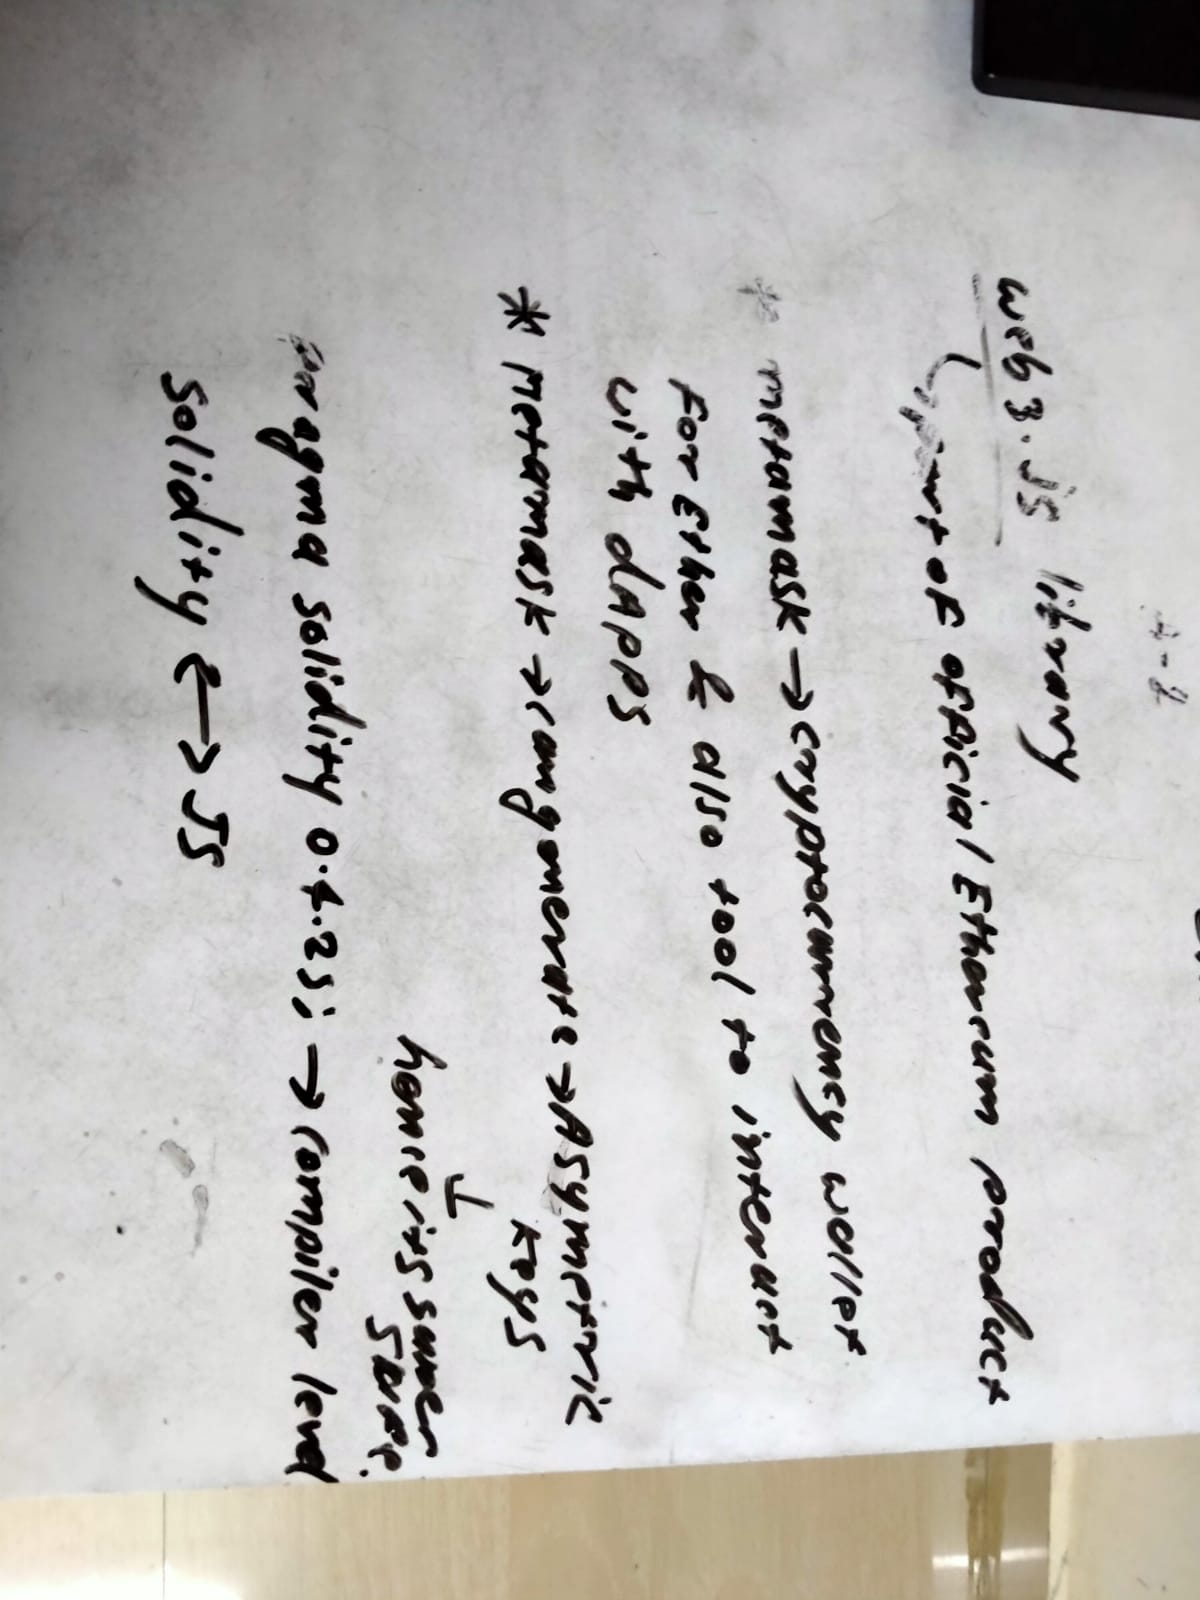 web3.js library
↳ part of official Ethereum product
* metamask → cryptocurrency wallet
for Ether & also tool to interact
with dapps
* Metamask → can generate → Asymmetric
keys
hence its super
safe.
pragma solidity 0.4.25; → compiler level
solidity ↔ JS